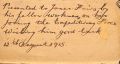 Presented to James Harris by
his fellow workmen on his
joining the Expeditionary Force
Wishing him good luck
12th August 1915